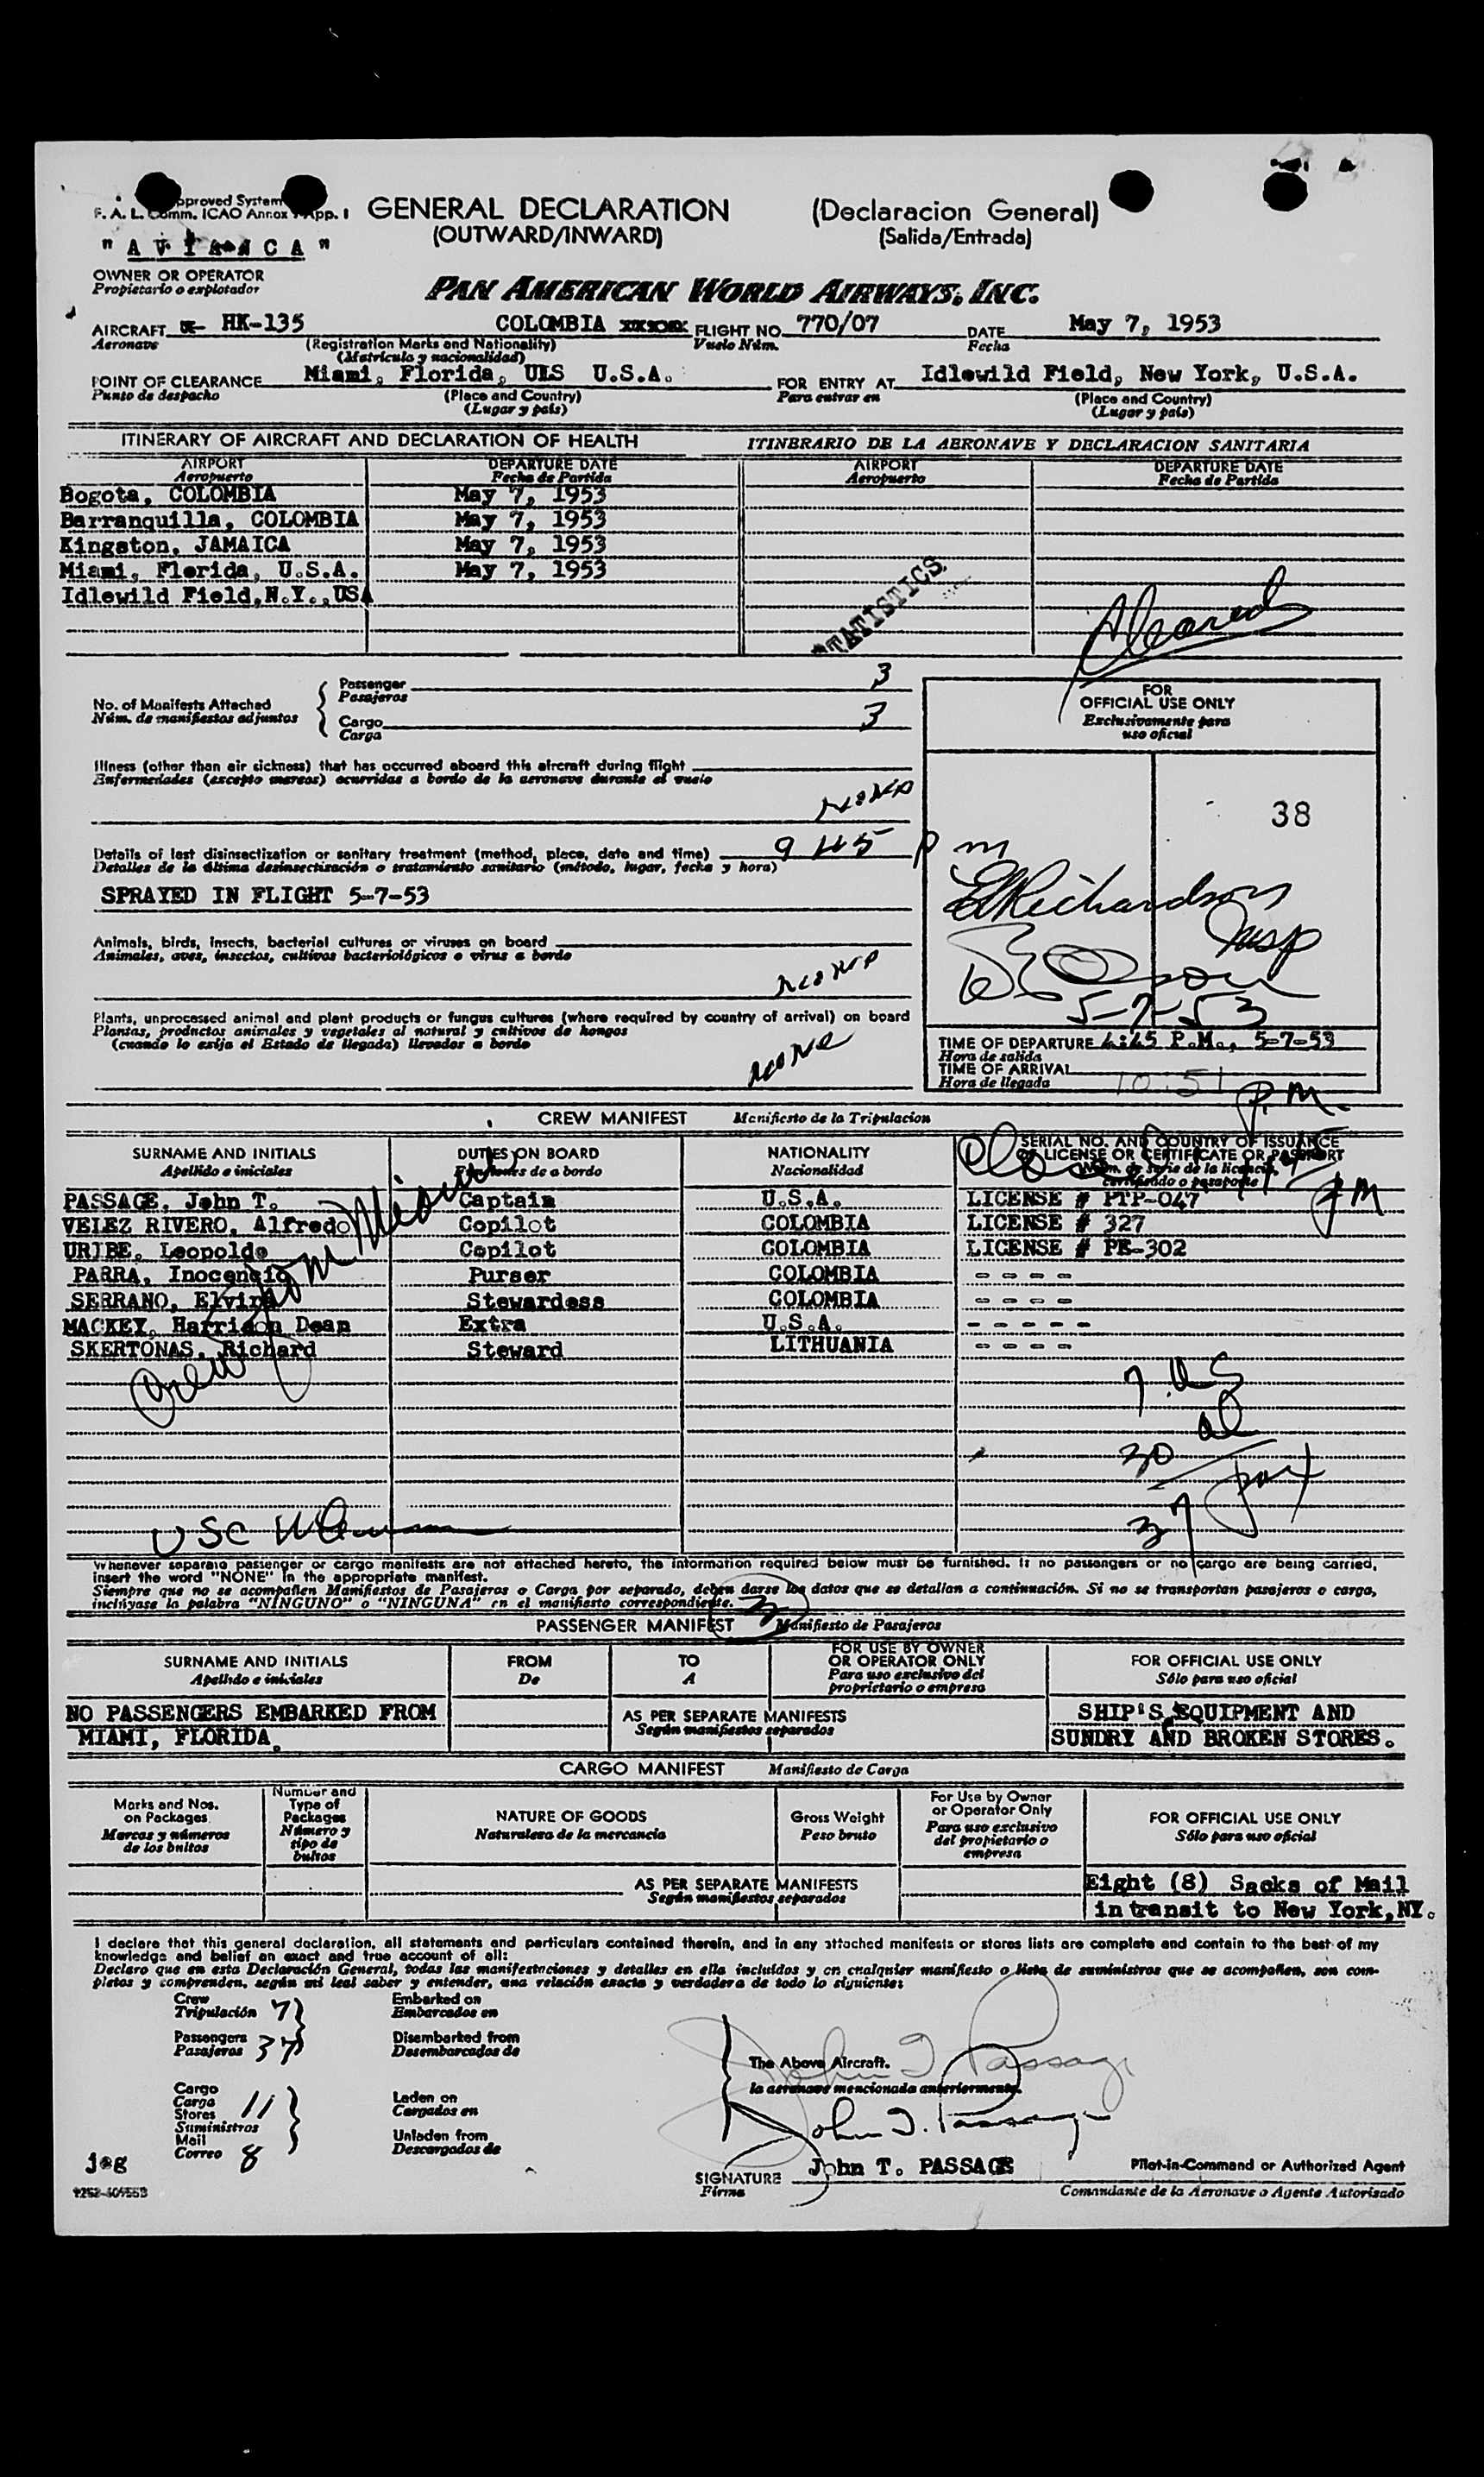 pproved System
F. A. L. Comm. ICAO Annex App. 1
GENERAL DECLARATION
(Declaracion General)
(OUTWARD/INWARD)
(Salida/Entrada)
" A V I A N C A "
OWNER OR OPERATOR
Propietario o explotador
PAN AMERICAN WORLD AIRWAYS, INC.
AIRCRAFT HK-135 COLOMBIA FLIGHT NO. 770/07 DATE May 7, 1953
Aeronave (Registration Marks and Nationality) Vuelo Núm. Fecha
(Matrícula y nacionalidad)
POINT OF CLEARANCE Miami, Florida, UIS U.S.A. FOR ENTRY AT Idlewild Field, New York, U.S.A.
Punto de despacho (Place and Country) Para entrar en (Place and Country)
(Lugar y país) (Lugar y país)
ITINERARY OF AIRCRAFT AND DECLARATION OF HEALTH ITINERARIO DE LA AERONAVE Y DECLARACION SANITARIA
AIRPORT DEPARTURE DATE AIRPORT DEPARTURE DATE
Aeropuerto Fecha de Partida Aeropuerto Fecha de Partida
Bogota, COLOMBIA May 7, 1953
Barranquilla, COLOMBIA May 7, 1953
Kingston, JAMAICA May 7, 1953
Miami, Florida, U.S.A. May 7, 1953
Idlewild Field,N.Y.,USA
STATISTICS
No. of Manifests Attached
Núm. de manifiestos adjuntos
Passenger 3
Pasajeros
Cargo 3
Carga
FOR
OFFICIAL USE ONLY
Exclusivamente para
uso oficial
Illness (other than air sickness) that has occurred aboard this aircraft during flight
Enfermedades (excepto mareos) ocurridas a bordo de la aeronave durante el vuelo
None
38
Details of last disinsectization or sanitary treatment (method, place, date and time) 9 45 pm
Detalles de la última desinsectización o tratamiento sanitario (método, lugar, fecha y hora)
SPRAYED IN FLIGHT 5-7-53
Richardson
Insp
Animals, birds, insects, bacterial cultures or viruses on board
Animales, aves, insectos, cultivos bacteriológicos o virus a bordo
None
5-7-53
Plants, unprocessed animal and plant products or fungus cultures (where required by country of arrival) on board
Plantas, productos animales y vegetales al natural y cultivos de hongos
(cuando lo exija el Estado de llegada) llevados a bordo
None
TIME OF DEPARTURE 4:45 P.M., 5-7-53
Hora de salida
TIME OF ARRIVAL 10:51 P.M.
Hora de llegada
CREW MANIFEST Manifiesto de la Tripulacion
SURNAME AND INITIALS DUTIES ON BOARD NATIONALITY SERIAL NO. AND COUNTRY OF ISSUANCE
OF LICENSE OR CERTIFICATE OR PASSPORT
Apellido e iniciales Funciones de a bordo Nacionalidad Núm. de Serie de la licencia,
certificado o pasaporte
PASSAGE, John T. Captain U.S.A. LICENSE # PTP-047
VELEZ RIVERO, Alfredo Copilot COLOMBIA LICENSE # 327
URIBE, Leopoldo Copilot COLOMBIA LICENSE # PK-302
PARRA, Inocencio Purser COLOMBIA - - - -
SERRANO, Elvira Stewardess COLOMBIA - - - -
MACKEY, Harridon Dean Extra U.S.A. - - - - -
SKERTONAS, Richard Steward LITHUANIA - - - -
Crew from Miami
7 US
al
30
37
USC
Whenever separate passenger or cargo manifests are not attached hereto, the information required below must be furnished. If no passengers or no cargo are being carried,
insert the word "NONE" in the appropriate manifest.
Siempre que no se acompañen Manifiestos de Pasajeros o Carga por separado, deben darse los datos que se detallan a continuación. Si no se transportan pasajeros o carga,
inclúyase la palabra "NINGUNO" o "NINGUNA" en el manifiesto correspondiente.
PASSENGER MANIFEST Manifiesto de Pasajeros
SURNAME AND INITIALS FROM TO FOR USE BY OWNER
OR OPERATOR ONLY FOR OFFICIAL USE ONLY
Apellido e iniciales De A Para uso exclusivo del
proprietario o empresa Sólo para uso oficial
NO PASSENGERS EMBARKED FROM AS PER SEPARATE MANIFESTS SHIP'S EQUIPMENT AND
MIAMI, FLORIDA. Según manifiestos separados SUNDRY AND BROKEN STORES.
CARGO MANIFEST Manifiesto de Carga
Marks and Nos.
on Packages
Marcas y números
de los bultos
Number and
Type of
Packages
Número y
tipo de
bultos
NATURE OF GOODS
Naturaleza de la mercancia
Gross Weight
Peso bruto
For Use by Owner
or Operator Only
Para uso exclusivo
del propietario o
empresa
FOR OFFICIAL USE ONLY
Sólo para uso oficial
AS PER SEPARATE MANIFESTS Eight (8) Sacks of Mail
Según manifiestos separados in transit to New York,NY.
I declare that this general declaration, all statements and particulars contained therein, and in any attached manifests or stores lists are complete and contain to the best of my
knowledge and belief an exact and true account of all:
Declaro que en esta Declaración General, todas las manifestaciones y detalles en ella incluídos y en cualquier manifiesto o lista de suministros que se acompañen, son com-
pletos y comprenden, según mi leal saber y entender, una relación exacta y verdadera de todo lo siguiente:
Crew Embarked on
Tripulación 7 Embarcados en
Passengers Disembarked from
Pasajeros 37 Desembarcados de
The Above Aircraft.
la aeronave mencionada anteriormente.
John T. Passage
Cargo
Carga
Stores 11
Suministros
Mail
Correo 8
Laden on
Cargados en
Unladen from
Descargados de
John T. Passage
jeg
SIGNATURE John T. PASSAGE Pilot-in-Command or Authorized Agent
Firma Comandante de la Aeronave o Agente Autorizado